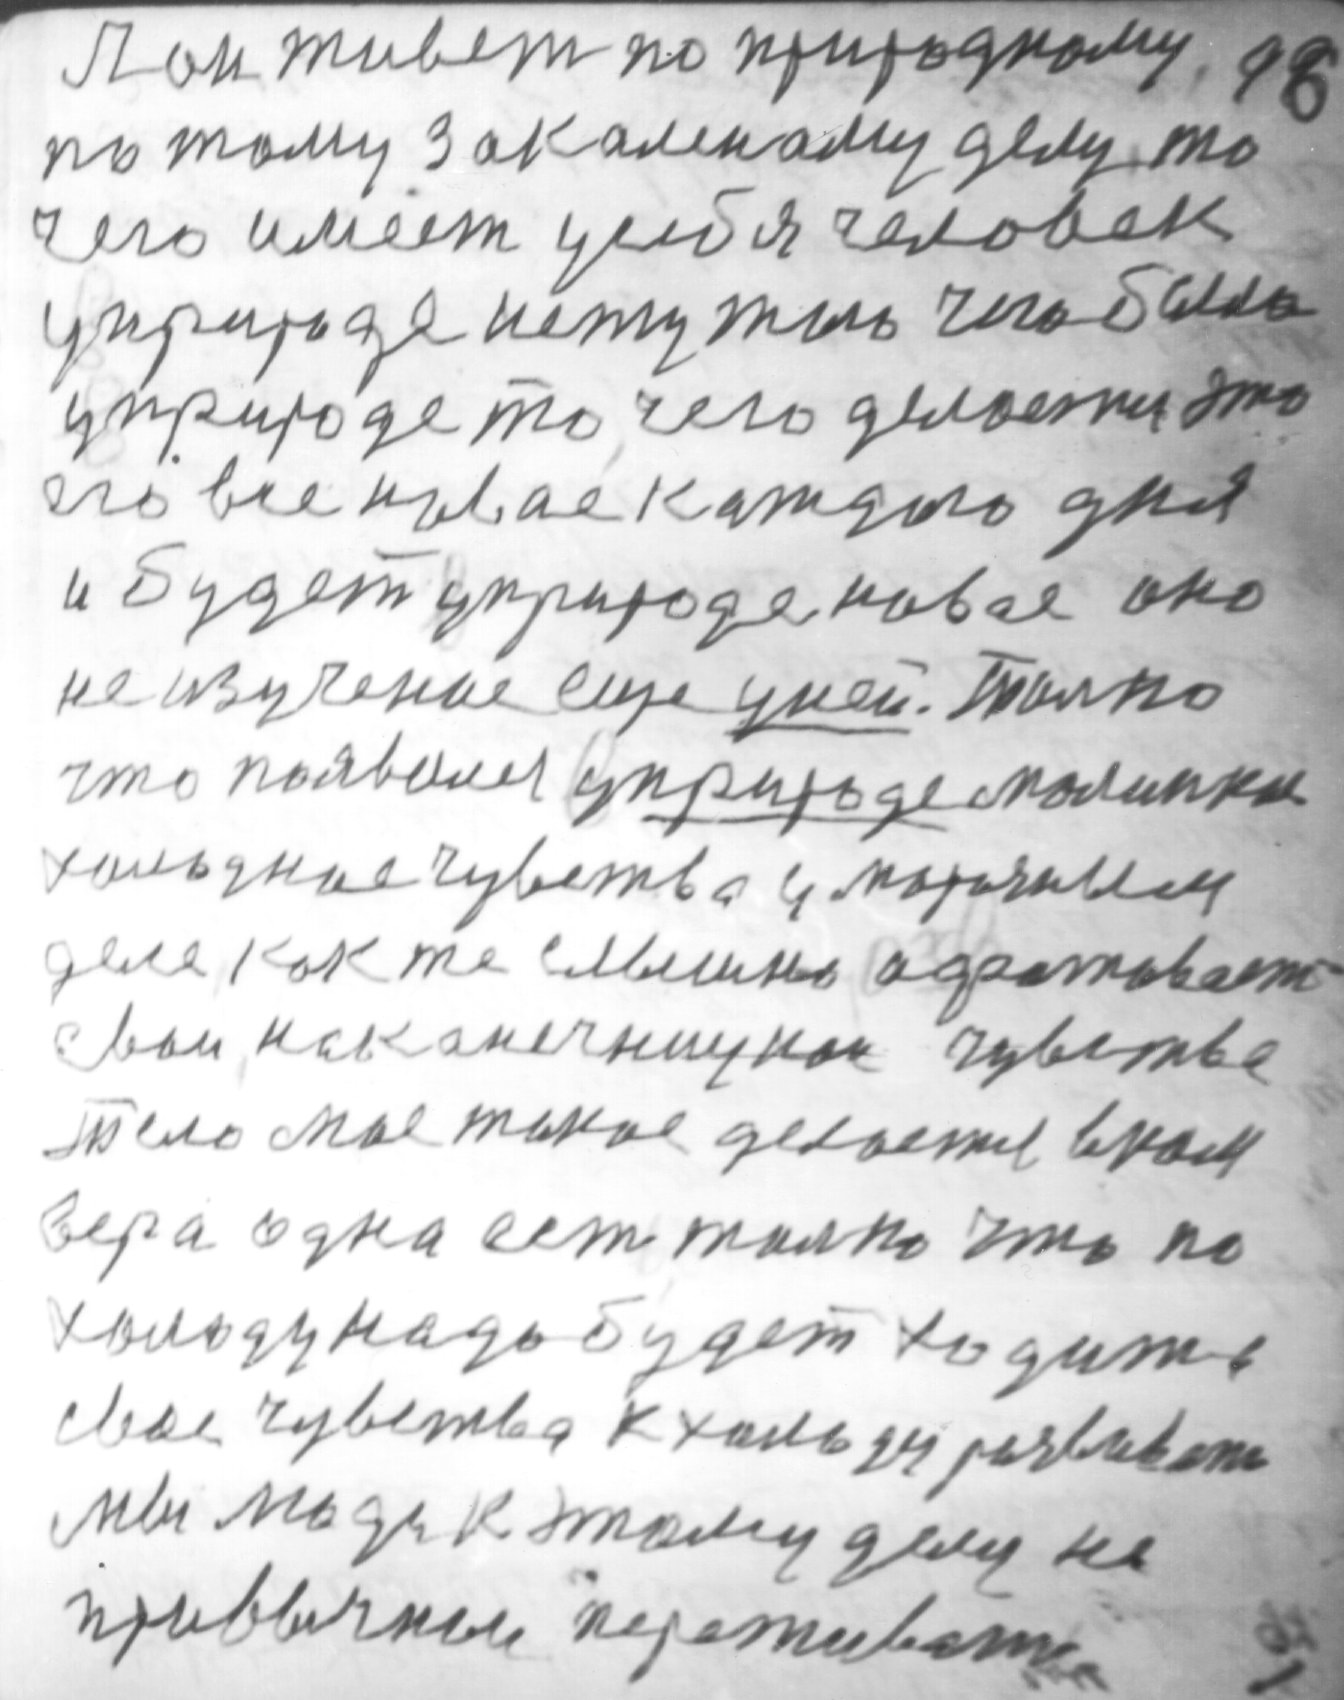 А он живет по природному 96
по тому закаленаму делу то
чего имеет у себя человек
у природе нету тово чего было
у природе то, чего делается это
его все новае каждого дня
и будет у природе новае оно
не изученое еще у ней. Толко
что появился у природе малинкии
холодное чувства у
деле как же
свои на чувства
Тело мае такое делается в нем
Вера одна есть толко что по
холоду надо будет ходить
свое чувства к холоду развивать
мы люди к этому делу не
привычные переживать